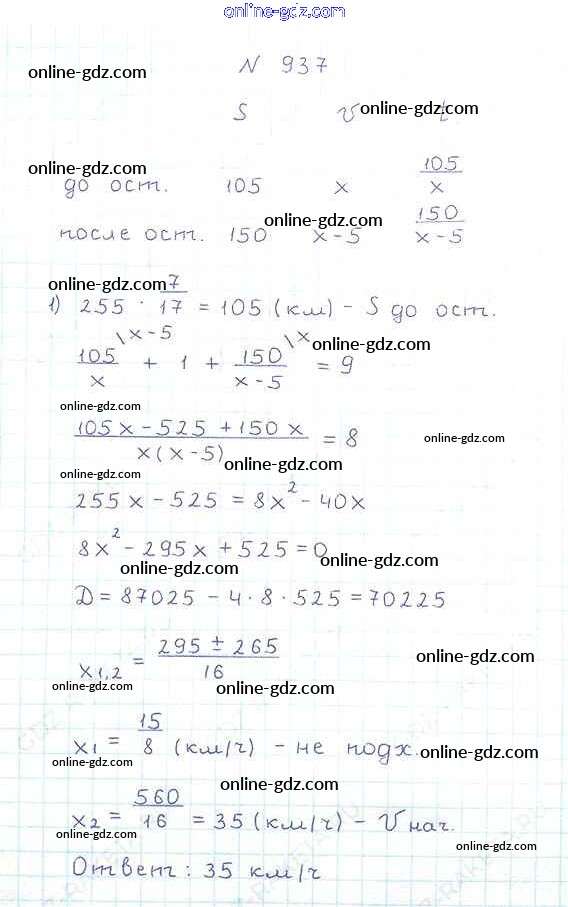 online-gdz.com
N 937
online-gdz.com
S v t online-gdz.com
online-gdz.com
до ост. 105 x 105/x
online-gdz.com
после ост. 150 x-5 150/(x-5)
online-gdz.com
1) 255 · 7/17 = 105 (км) - S до ост.
105/x \x-5 + 1 + 150/(x-5) \x = 9
online-gdz.com
online-gdz.com
(105x-525+150x)/(x(x-5)) = 8
online-gdz.com
online-gdz.com
online-gdz.com
255x-525=8x²-40x
8x²-295x+525=0
online-gdz.com
online-gdz.com
D=87025-4·8·525=70225
x1,2 = (295±265)/16
online-gdz.com
online-gdz.com
online-gdz.com
x1 = 15/8 (км/ч) - не подх.
online-gdz.com
online-gdz.com
online-gdz.com
x2 = 560/16 = 35 (км/ч) - V нач.
online-gdz.com
online-gdz.com
Ответ: 35 км/ч